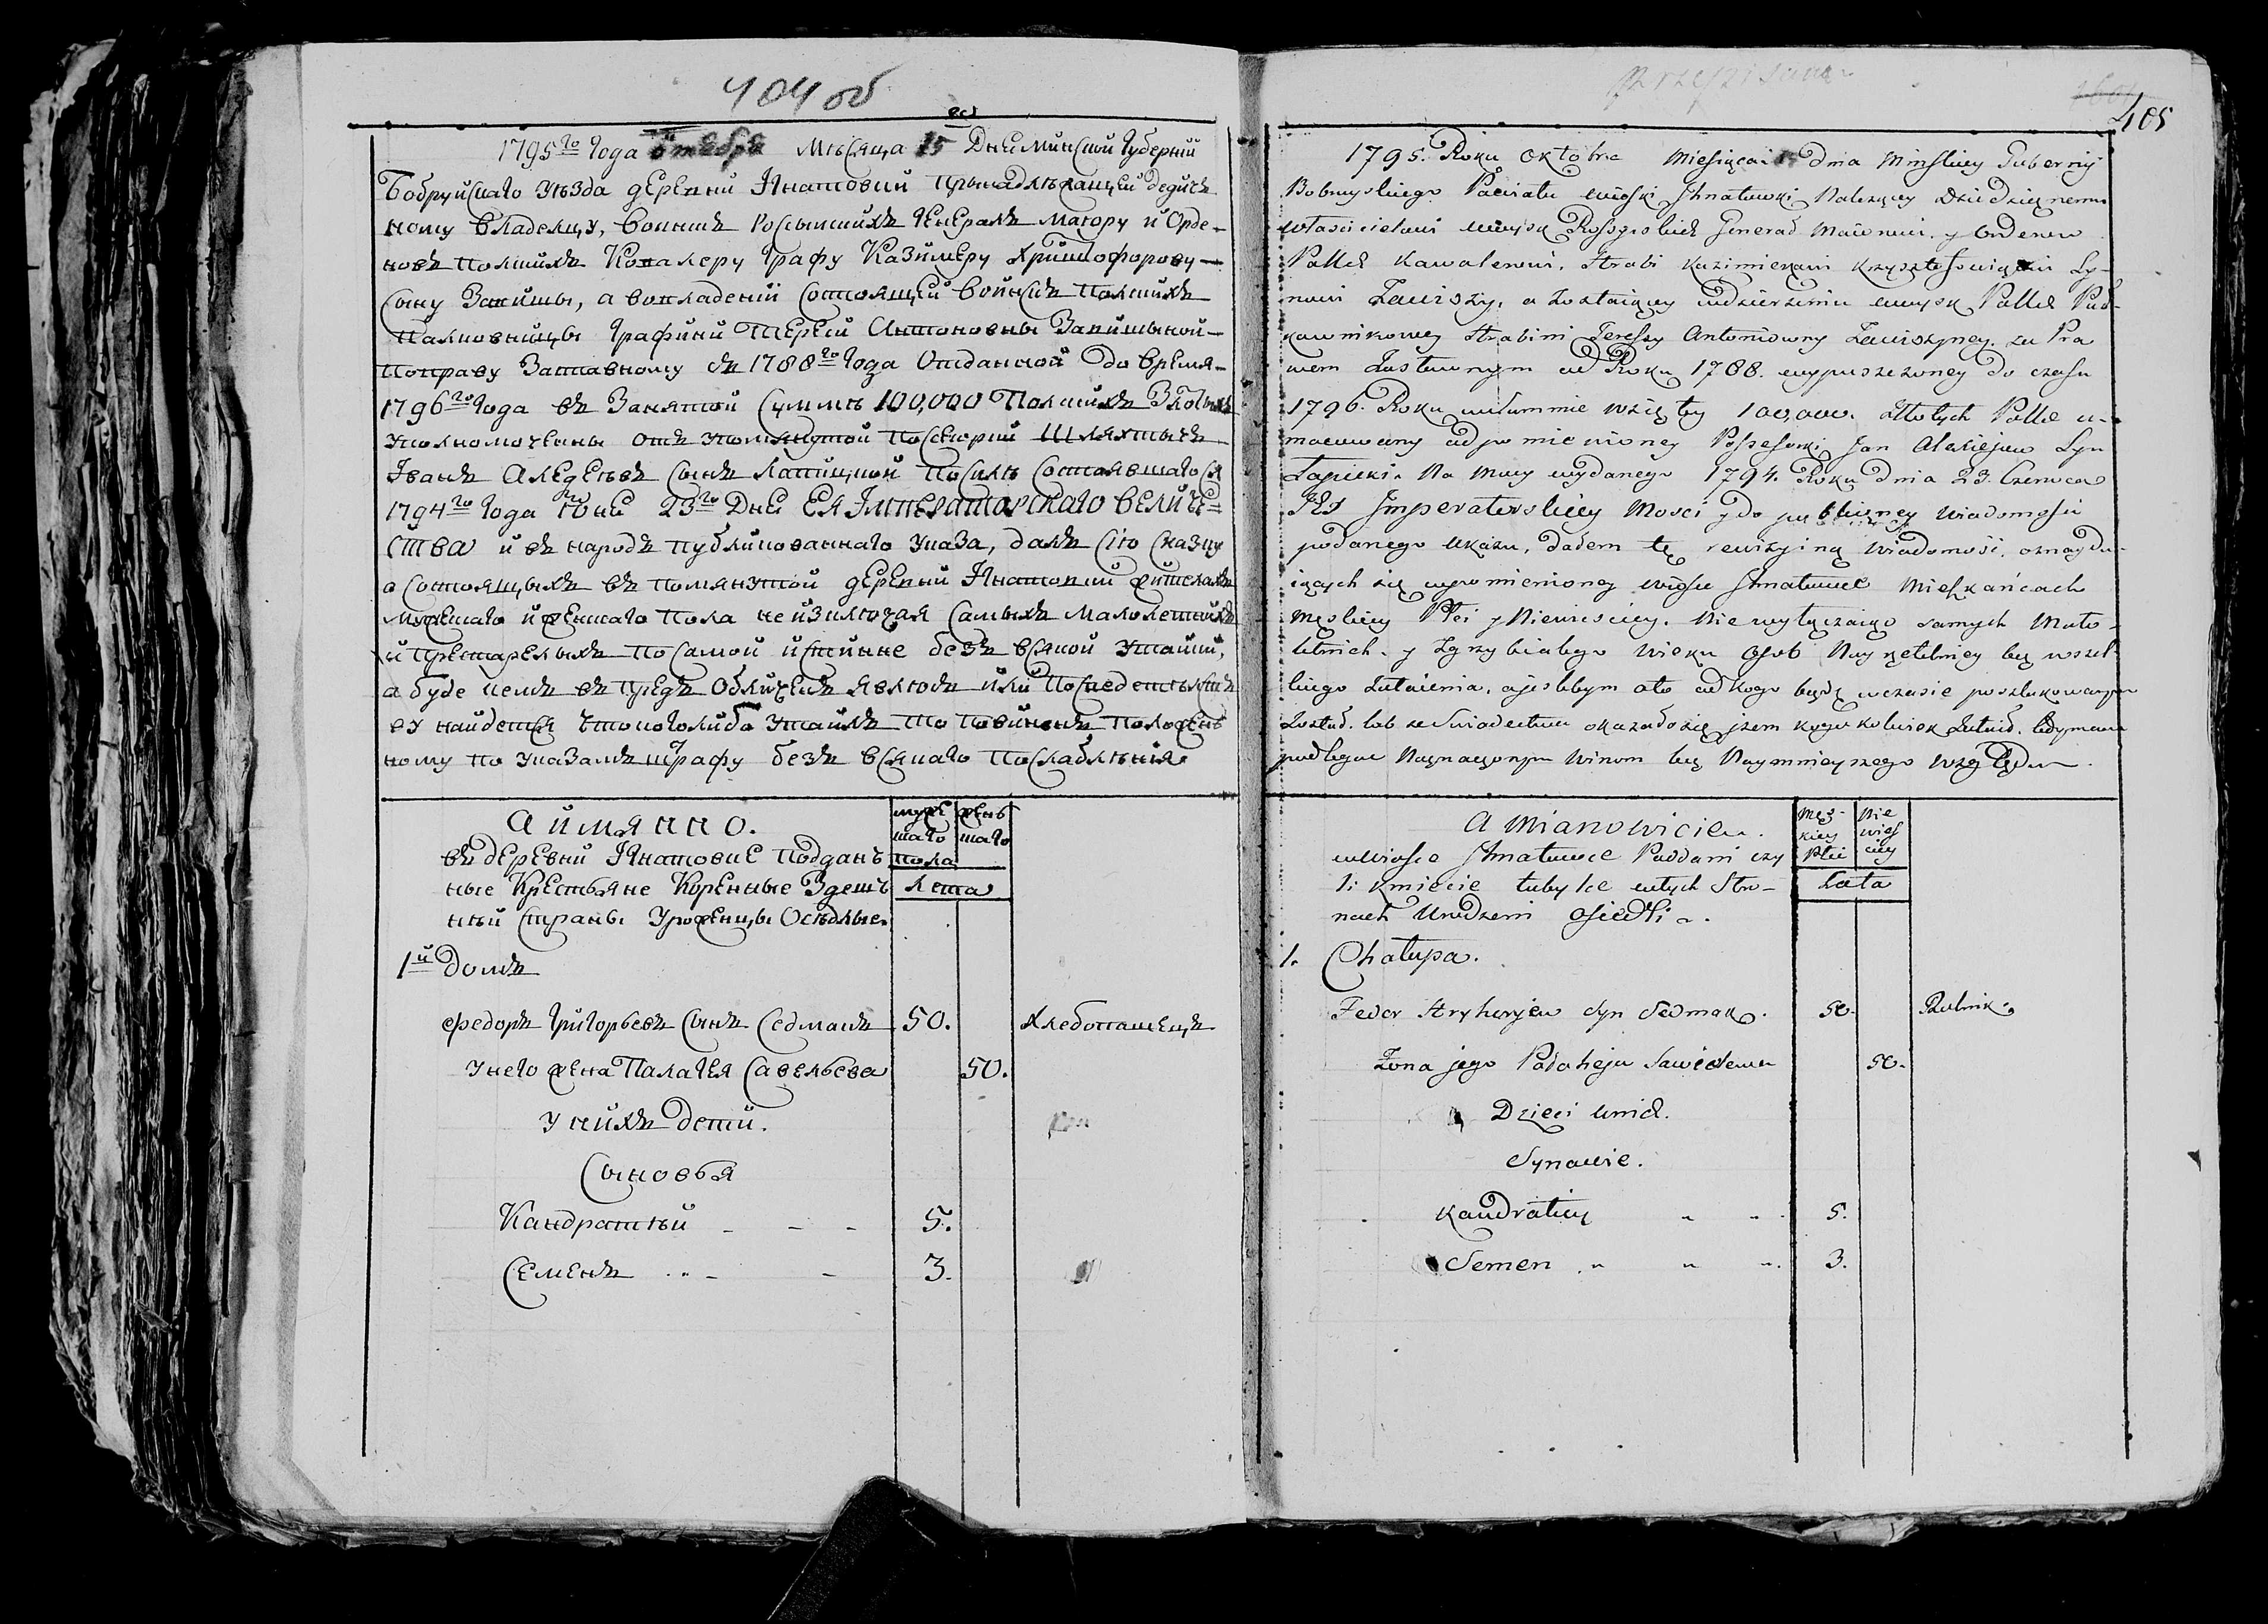 404 об
1795го Года октября месяца 15 Дня Минской Губернии
Бобруйского Уезда деревни Игнатовки принадлежащей дедич
ному Владельцу, Воинскъ Россыйскихъ Генералъ Маиору и Орде-
новъ Польскихъ Кавалеру Графу Казимеру Христофорову-
Сыну Завишы, а во владении состоящей Войскъ Польскихъ
Полковницы Графини Терезы Антоновны Завишыной-
по праву Заставному съ 1788го Года Отданной до время-
1796го Года въ Занятой Сумме 100,000 Польскихъ Злотыхъ
Уполномоченый отъ упомянутой Шляхтичъ
Иванъ Алексеевъ Сынъ после состоявшагося
1794го Года Июня 23го Дня ЕЯ Императорскаго Величе=
ства и въ народъ публикованнаго Указа, далъ сию сказку
о состоящыхъ въ помянутой деревни Игнатовки жителахъ
мужескаго и женскаго пола не изключая самыхъ малолетныхъ
и престарелыхъ по самой истинне безъ всякой утайки,
а буде кемъ въ предъ обличенъ явлюсь или по
ву найдется что кого либо утаилъ то повиненъ положен
ному по Указамъ штрафу безъ всякаго послабления.
А имянно.
въ деревни Игнатовке поддан
ные Крестьяне Коренные Здеш
ней страны Уроженцы Оседлые.
муже
скаго
пола
жен
скаго
лета
1й Домъ
Федоръ Григорьевъ Сынъ Седмакъ 50. Хлебопашецъ
У него жена Палагея Савельева 50.
У нихъ дети.
Сыновья
Кандратей - - - 5.
Семенъ - - 3.
405
1795. Roku oktobra Miesiąca 15 dnia Minskiey Gubernij
Bobruyskiego Powiatu wioski Ihnatowki Należący Dziedzicznemu
własścicielowi woysk Rossyiskich Generał Maiorowi y Orderow
Polsk Kawalerowi, Hrabi Kazimierzowi Krysztofowiczowi Sy-
nowi Zawiszy, a zostaiący w dzierżeniu woysk Polsk Puł-
kownikowey Hrabini Teressy Antoniowny Zawiszyney. za Pra
wem Zastawnym od Roku 1788. wypuszczoney do czasu
1796. Roku w Summie wzięty 100,000. Złotych Polsk u-
mocowany od pomienioney Possessorki Jan Alexiejew Syn
Łapicki. Na mocy wydanego 1794. Roku dnia 23. Czerwca
Jey Imperatorskiey Mosci y do publiczney wiadomosci
podanego Ukazu, dałem tę rewizyiną wiadomość, o znaydu-
iących się w pomienioney wiosce Ihnatowce Mieszkańcach
męskiey Płci y Niewiesciey. Nie wyłączaiąc samych Mało-
letnich. y Zgrzybiałego wieku Osob Nayrzetelniey bez wszel-
kiego Zataienia, a jeslibym o to od kogo bądź w czasie poszlakowanym
Został. lub ze Swiadectwa okazało się jzem kogo kolwiek Zataił.
podlegać Naznaczonym Winom bez Naymnieyszego względu.
A Mianowicie.
w Wiosce Ihnatowce Poddani czy
li kmiecie tubylce w tych Stro-
nach Urodzeni Osiedli.
Męs-
kiey
Płci
Nie
wies
ciey
Lata
1. Chałupa.
Fedor Hryhoryew Syn Sedmak. 50. Rolnik.
Żona jego Pałaheja Sawielewa 50.
Dzieci Unich.
Synowie.
Kandratiey " " 5.
Semen " " " 3.